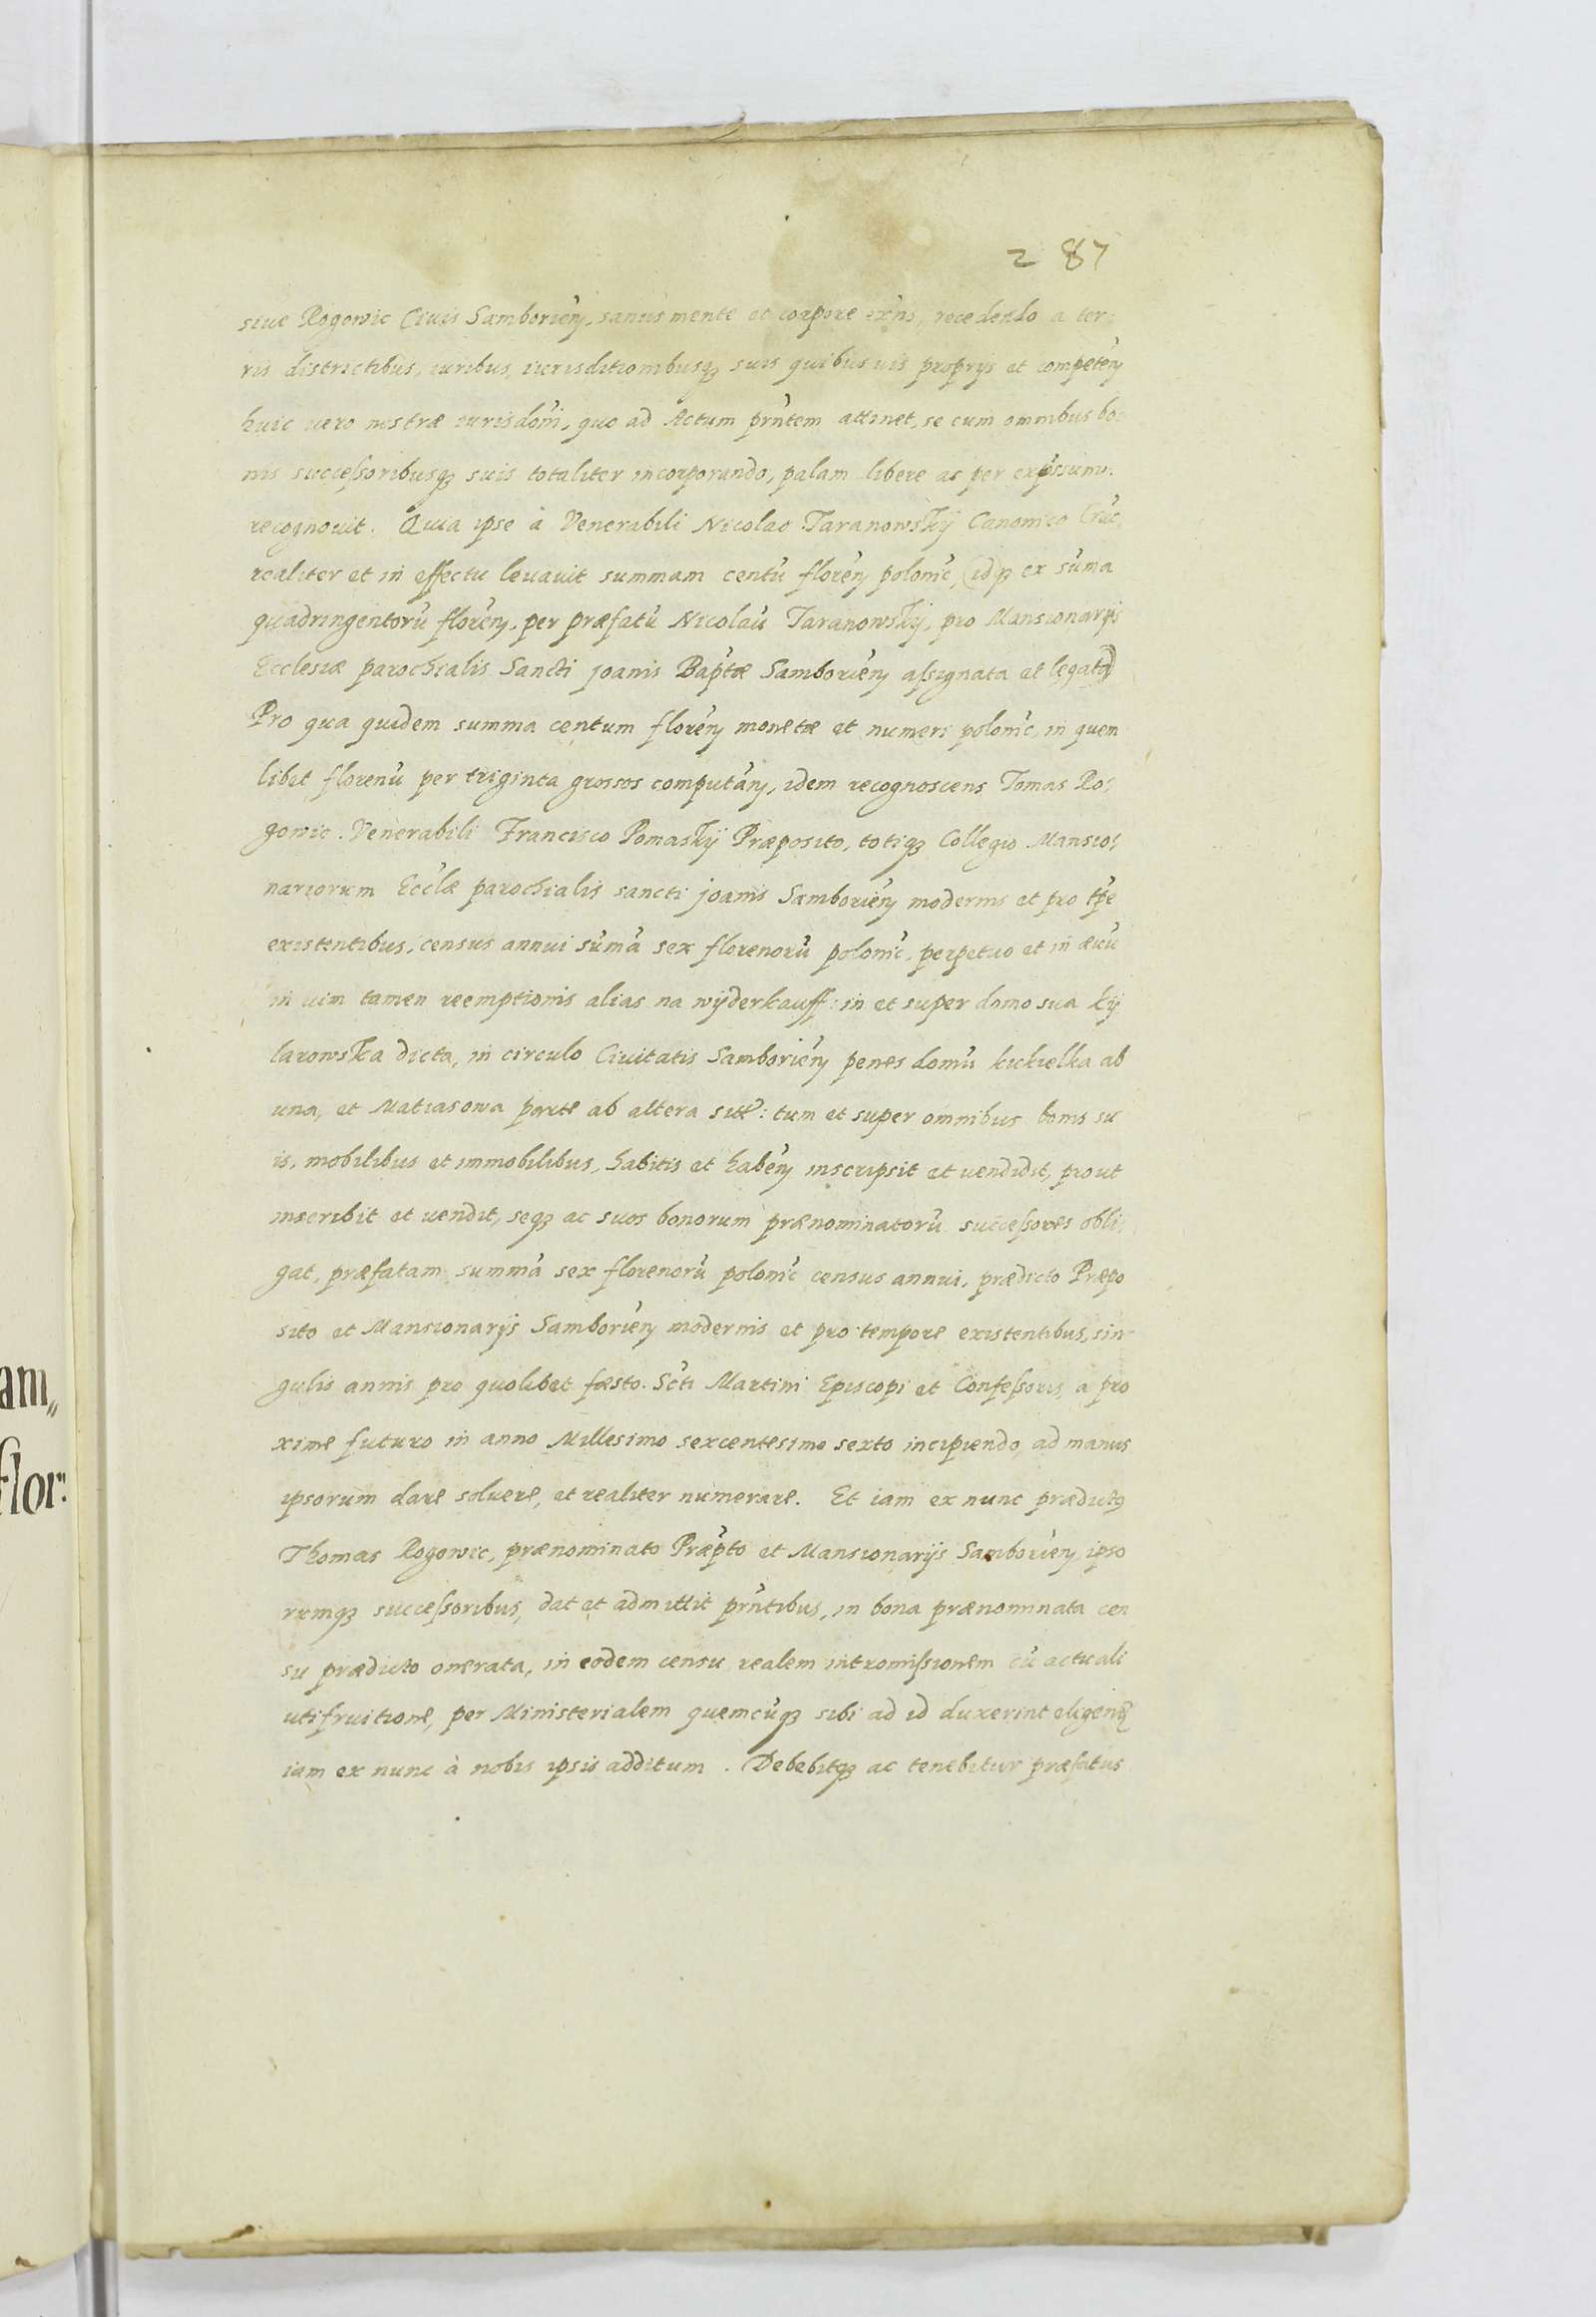 287
siue Rogowic Ciuis Samborień, sanus mente et corpore exńs, recedendo a ter:
ris districtibus, iuribus, iurisditionibusqȝ suis quibusuis proprijs et competeń
huic uero nostræ iurisdom̃, quo ad Actum prn̄tem attinet, se cum omnibus bo:
nis succeſsoribusqȝ suis totaliter incorporando, palam libere ac per exp̃ssum.
recognouit. Quia ipse à Venerabili Nicolao Taranowskij Canonico
realiter et in effectu leuauit summam centũ floreń polonić, (idqȝ ex sũma
quadringentorũ floreń, per præfatũ Nicolaũ Taranowskij, pro Mansionarijs
Ecclesiæ parochialis Sancti Joanis Bap̃tæ Samborień aſsignata et legata)
Pro qua quidem summa centum floreń monetæ et numeri polonić, in quem
libet florenũ per triginta grossos computań, idem recognoscens Tomas Ro:
gowic. Venerabili Francisco Pomaskij Præposito, totiqȝ Collegio Mansio:
nariorum Eccl̃æ parochialis sancti Joanis Samborień modernis et pro tp̃e
existentibus, census annui sũmã sex florenorũ polonić, perpetuo et in æuũ
in uim tamen reemptionis alias na wyderkauff: in et super domo sua Ky
larowska dicta, in circulo Ciuitatis Samborień penes domũ kukielka ab
una, et Matiasowa parte ab altera sitẽ: tum et super omnibus bonis su
is, mobilibus et immobilibus, habitis et habeń inscripsit et uendidit, prout
inscribit et uendit, seqȝ ac suos bonorum prænominatorũ succeſsores obli:
gat, præfatam summã sex florenorũ polonić census annui, prædicto Præpo
sito et Mansionarijs Samborień modernis et pro tempore existentibus, sin
gulis annis pro quolibet fæsto Scti Martini Episcopi et Confeſsoris, a pro
xime futuro in anno Millesimo sexcentesimo sexto incipiendo, ad manus
ipsorum dare soluere, et realiter numerare. Et iam ex nunc prædictꝰ
Thomas Rogowic, prænominato Præp̃to et Mansionarijs Samborień, ipso
rumqȝ succeſsoribus, dat et admittit prn̄tibus, in bona prænominata cen
su prædicto onerata, in eodem censu realem intromiſsionem cũ actuali
utifruitione, per Ministerialem quemcũqȝ sibi ad id duxerint eligend̃
iam ex nunc à nobis ipsis additum. Debebitqȝ ac tenebitur præfatus
am,,
flor: